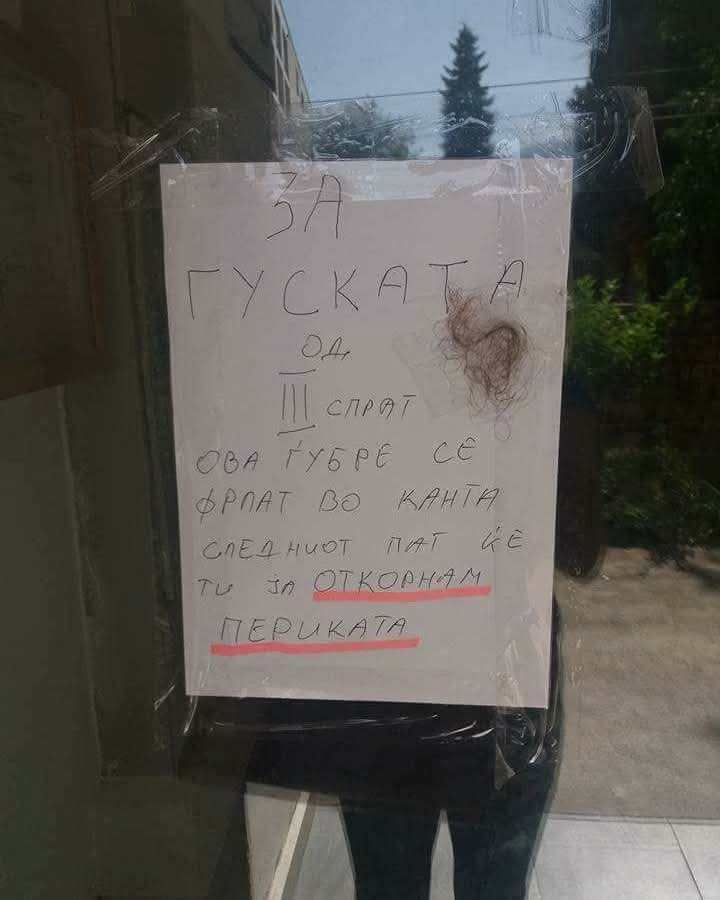 ЗА
ГУСКАТА
ОД
III СПРАТ
ОВА ЃУБРЕ СЕ
ФРЛАТ ВО КАНТА
СЛЕДНИОТ ПАТ ЌЕ
ТИ ЈА ОТКОРНАМ
ПЕРИКАТА